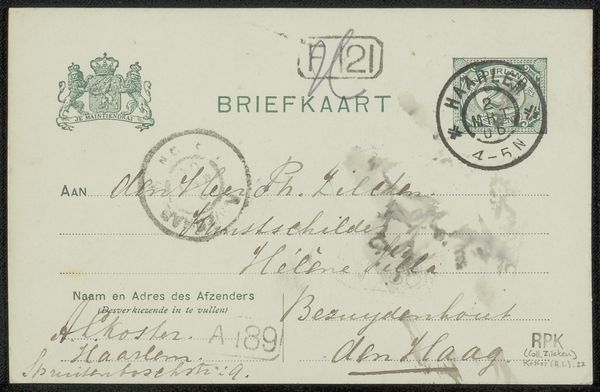 P 121
JE MAINTIENDRAI
BRIEFKAART
HAARLEM
2
MRT
06
4-5 N
AAN den Heer Ph. Zilcken.
Kunstschilder
Hélène Villa
Bezuydenhout
den Haag
Naam en Adres des Afzenders
(Desverkiezende in te vullen)
A. L. Koster.
Haarlem.
A 189
RPK
(Coll. Zilcken)